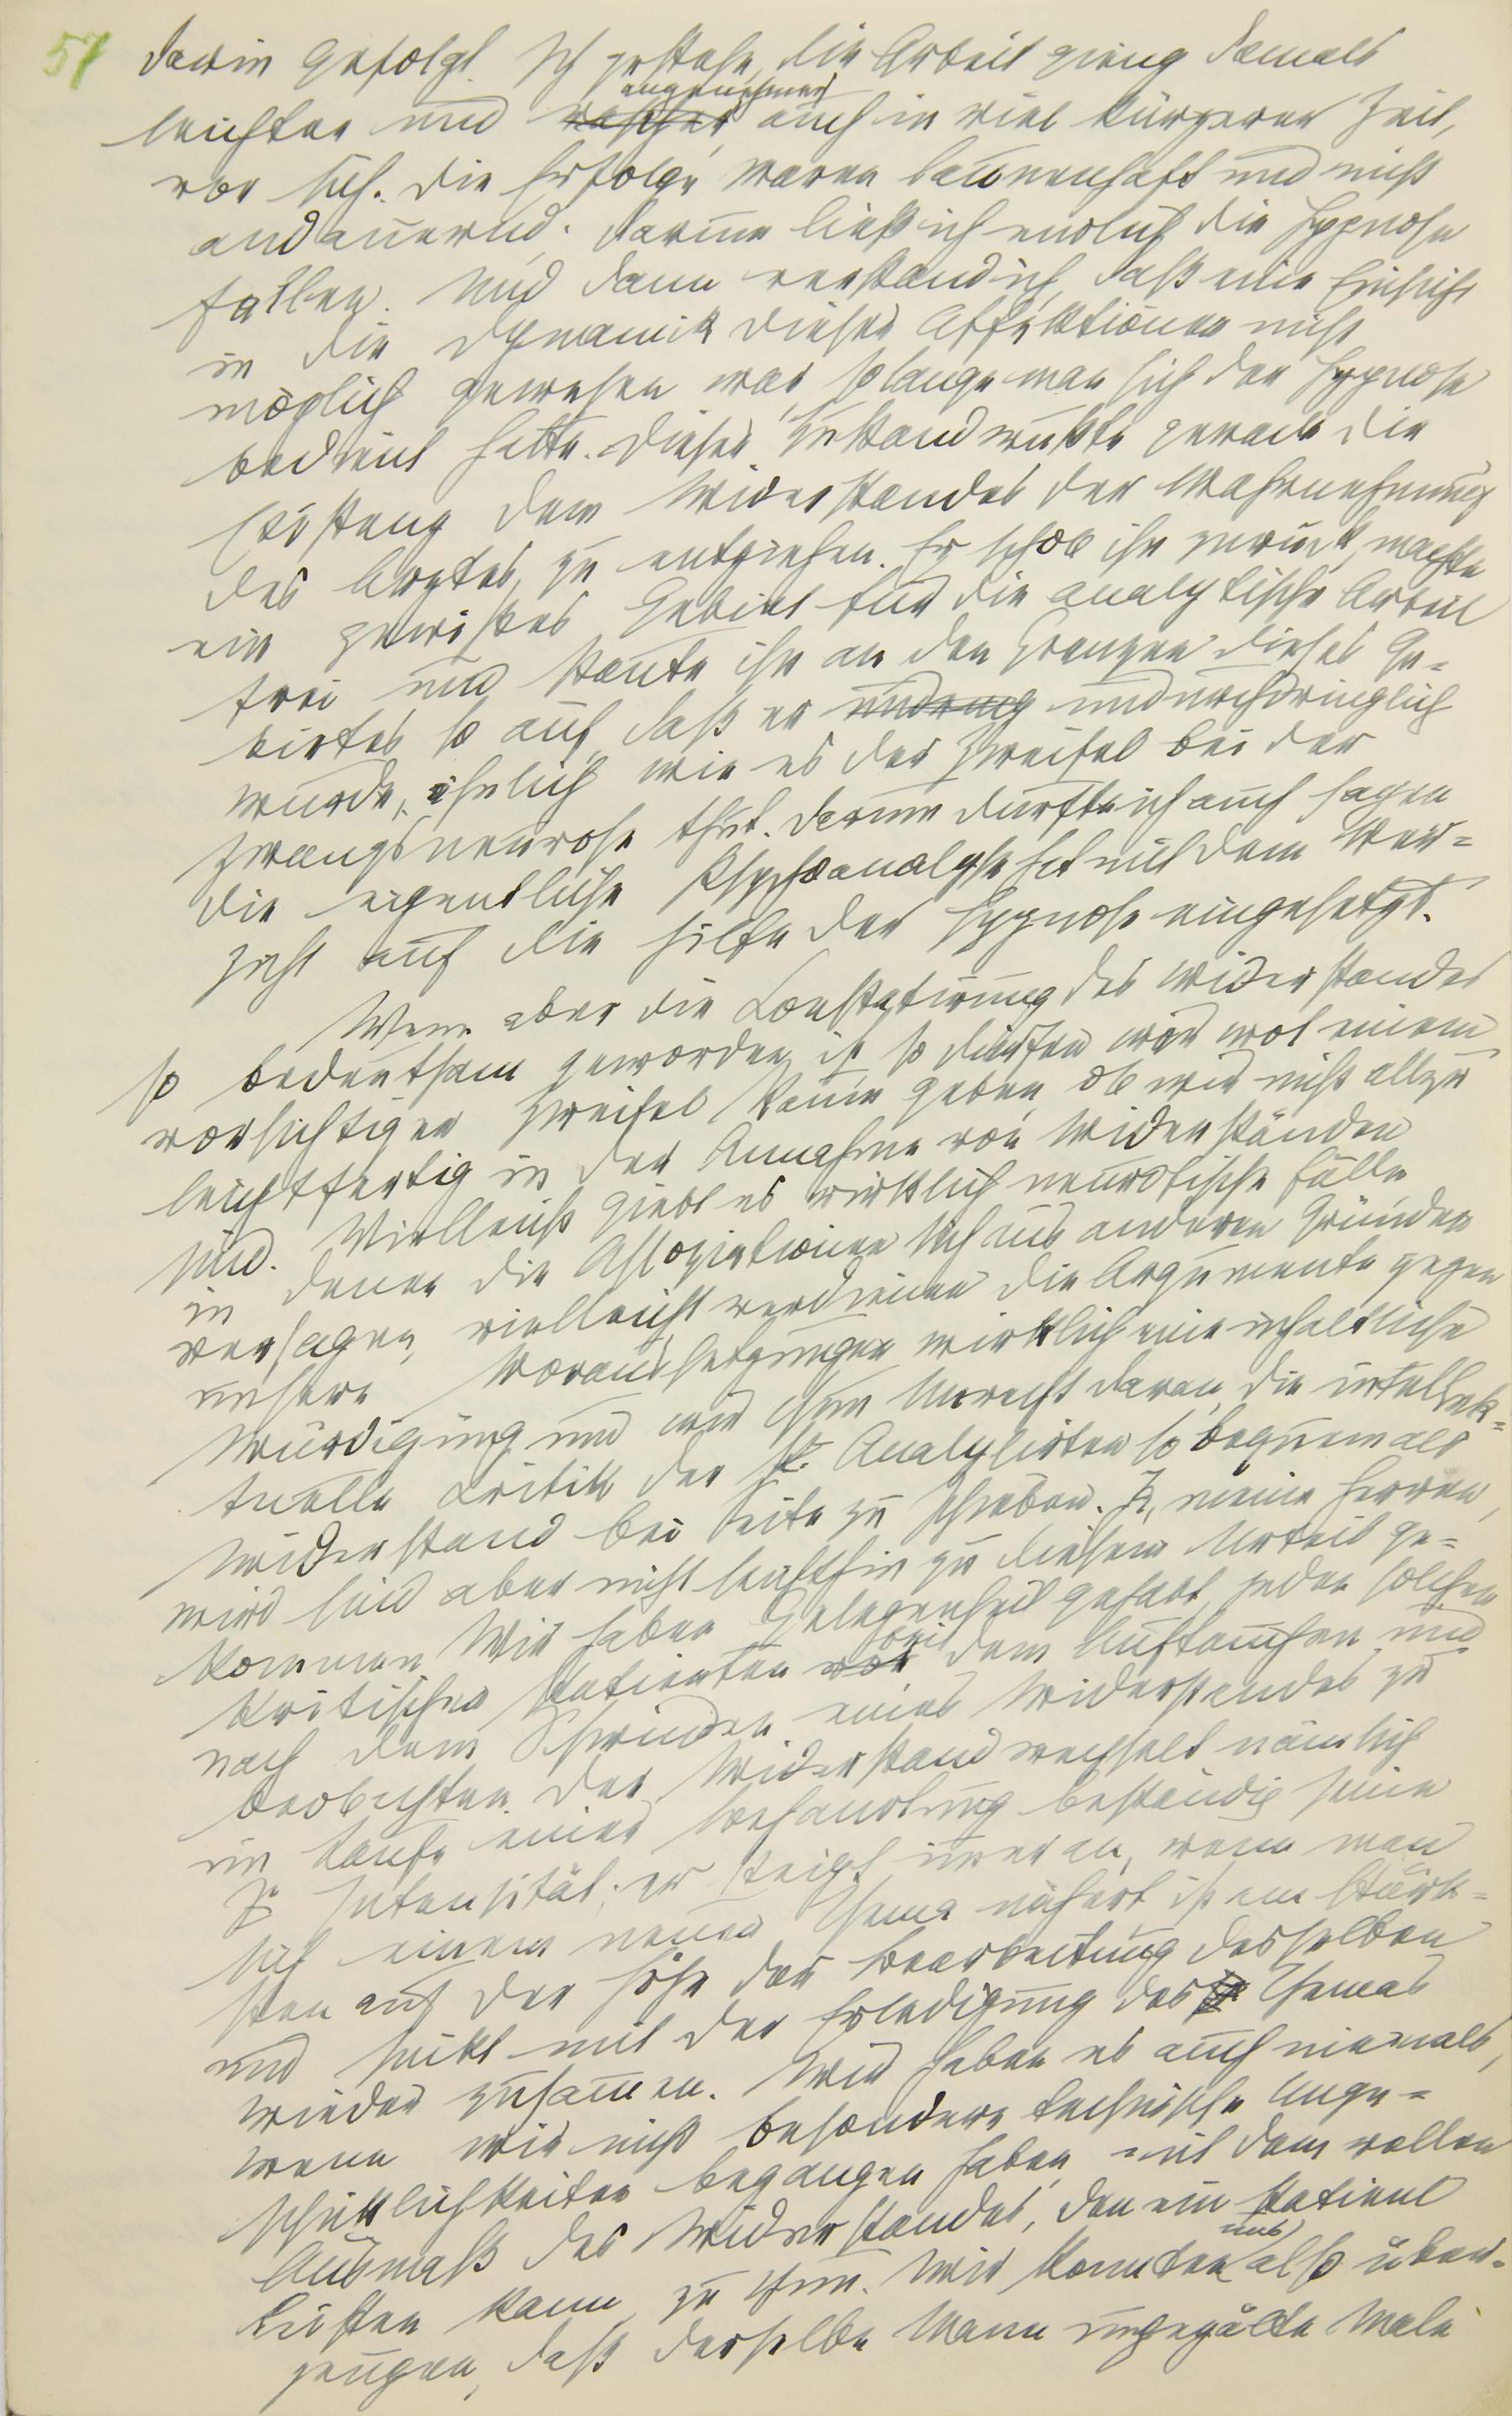 57
darin gefolgt. Ich gestehe, die Arbeit gieng damals
angenehmer
leichter und rascher, auch in viel kürzerer Zeit,
vor sich. Die Erfolge waren launenhaft und nicht
andauernd. Darum ließ ich endlich die Hypnose
fallen. Und dann verstand ich, daß eine Einsicht
in die Dynamik dieser Affektionen nicht
möglich gewesen war, solange man sich der Hypnose
bedient hatte. Dieser Zustand wußte gerade die
Existenz des Widerstandes der Wahrnehmung
des Arztes zu entziehen. Er schob ihn zurück, machte
ein gewisses Gebiet für die analytische Arbeit
frei und staute ihn an den Grenzen dieses Ge-
bietes so auf, daß er undurchdringlich
wurde, ähnlich wie es der Zweifel bei der
Zwangsneurose thut. Darum durfte ich auch sagen
die eigentliche Psychoanalyse hat mit dem Ver-
zicht auf die Hilfe der Hypnose eingesetzt.
Wenn aber die Constatirung des Widerstandes
so bedeutsam geworden ist so dürfen wir wol einem
vorsichtigen Zweifel Raum geben, ob wir nicht allzu
leichtfertig in der Annahme von Widerständen
sind. Vielleicht giebt es wirklich neurotische Fälle
in denen die Assoziationen sich aus anderen Gründen
versagen, vielleicht verdienen die Argumente gegen
unsere Voraussetzungen wirklich eine inhaltliche
Würdigung und wir thun Unrecht daran, die intellek-
tuelle Kritik der Analysirten so bequem als
Widerstand bei Seite zu schieben. Ja, meine Herren,
wir sind aber nicht leichthin zu diesem Urteil ge-
kommen. Wir haben Gelegenheit gehabt, jeden solchen
bei
kritischen Patienten vor dem Auftauchen und
nach dem Schwinden eines Widerstandes zu
beobachten. Der Widerstand wechselt nämlich
im Laufe einer Behandlung beständig seine
Intensität; er steigt immer an, wenn man
sich einem neuen Thema nähert, ist am stärk-
sten auf der Höhe der Bearbeitung desselben
und sinkt mit der Erledigung des Themas
wieder zusammen. Wir haben es auch niemals,
wenn wir nicht besondere technische Unge-
schicklichkeiten begangen haben, mit dem vollen
Ausmaß des Widerstandes, den ein Patient
uns
leisten kann, zu thun. Wir konnten also über-
zeugen, daß derselbe Mann ungezälte Male